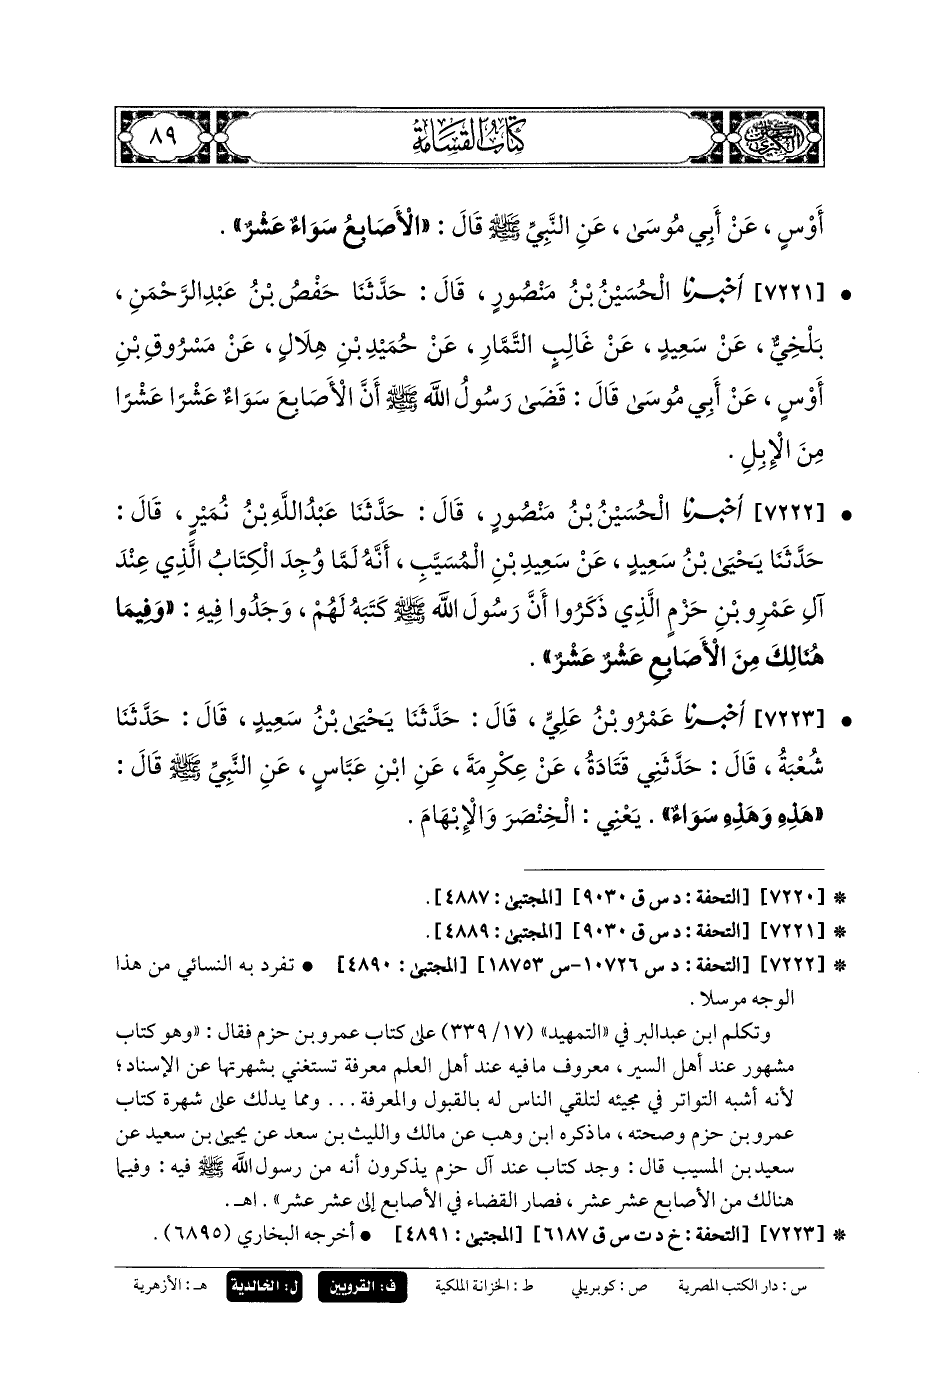 السنن الكبرى كتاب القسامة ٨٩
أَوْسٍ ، عَنْ أَبِي مُوسَى ، عَنِ النَّبِيِّ ﷺ قَالَ : «الْأَصَابِعُ سَوَاءٌ عَشْرٌ» .
• [٧٢٢١] أخبرنا الْحُسَيْنُ بْنُ مَنْصُورٍ ، قَالَ : حَدَّثَنَا حَفْصُ بْنُ عَبْدِالرَّحْمَنِ ،
بَلْخِيٌّ ، عَنْ سَعِيدٍ ، عَنْ غَالِبٍ التَّمَّارِ ، عَنْ حُمَيْدِ بْنِ هِلَالٍ ، عَنْ مَسْرُوقِ بْنِ
أَوْسٍ ، عَنْ أَبِي مُوسَى قَالَ : قَضَى رَسُولُ اللَّه ﷺ أَنَّ الْأَصَابِعَ سَوَاءٌ عَشْرًا عَشْرًا
مِنَ الْإِبِلِ .
• [٧٢٢٢] أخبرنا الْحُسَيْنُ بْنُ مَنْصُورٍ ، قَالَ : حَدَّثَنَا عَبْدُاللَّهِ بْنُ نُمَيْرٍ ، قَالَ :
حَدَّثَنَا يَحْيَى بْنُ سَعِيدٍ ، عَنْ سَعِيدِ بْنِ الْمُسَيَّبِ ، أَنَّهُ لَمَّا وُجِدَ الْكِتَابُ الَّذِي عِنْدَ
آلِ عَمْرِو بْنِ حَزْمٍ الَّذِي ذَكَرُوا أَنَّ رَسُولَ اللَّه ﷺ كَتَبَهُ لَهُمْ ، وَجَدُوا فِيهِ : «وَفِيمَا
هُنَالِكَ مِنَ الْأَصَابِعِ عَشْرٌ عَشْرٌ» .
• [٧٢٢٣] أخبرنا عَمْرُو بْنُ عَلِيٍّ ، قَالَ : حَدَّثَنَا يَحْيَى بْنُ سَعِيدٍ ، قَالَ : حَدَّثَنَا
شُعْبَةُ ، قَالَ : حَدَّثَنِي قَتَادَةُ ، عَنْ عِكْرِمَةَ ، عَنِ ابْنِ عَبَّاسٍ ، عَنِ النَّبِيِّ ﷺ قَالَ :
«هَذِهِ وَهَذِهِ سَوَاءٌ» . يَعْنِي : الْخِنْصَرَ وَالْإِبْهَامَ .
* [٧٢٢٠] [التحفة : د س ق ٩٠٣٠] [المجتبى : ٤٨٨٧] .
* [٧٢٢١] [التحفة : د س ق ٩٠٣٠] [المجتبى : ٤٨٨٩] .
* [٧٢٢٢] [التحفة : د س ١٠٧٢٦-س ١٨٧٥٣] [المجتبى : ٤٨٩٠] • تفرد به النسائي من هذا
الوجه مرسلا .
وتكلم ابن عبدالبر في «التمهيد» (١٧/ ٣٣٩) على كتاب عمرو بن حزم فقال : «وهو كتاب
مشهور عند أهل السير ، معروف مافيه عند أهل العلم معرفة تستغني بشهرتها عن الإسناد ؛
لأنه أشبه التواتر في مجيئه لتلقي الناس له بالقبول والمعرفة ... ومما يدلك على شهرة كتاب
عمرو بن حزم وصحته ، ماذكره ابن وهب عن مالك والليث بن سعد عن يحيى بن سعيد عن
سعيد بن المسيب قال : وجد كتاب عند آل حزم يذكرون أنه من رسول اللَّه ﷺ فيه : وفيما
هنالك من الأصابع عشر عشر ، فصار القضاء في الأصابع إلى عشر عشر» . اهـ .
* [٧٢٢٣] [التحفة : خ د ت س ق ٦١٨٧] [المجتبى : ٤٨٩١] • أخرجه البخاري (٦٨٩٥) .
س : دار الكتب المصرية ص : كوبريلي ط : الخزانة الملكية ف : القرويين ل : الخالدية هـ : الأزهرية